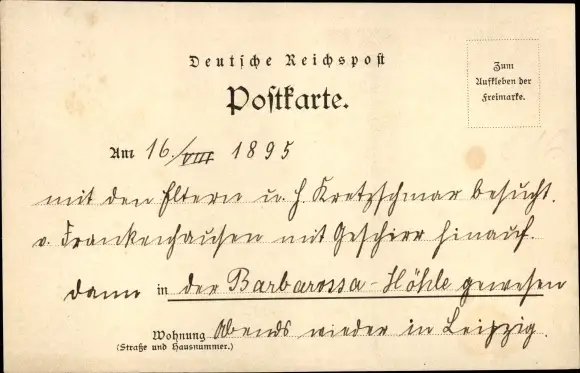 Deutsche Reichspost
Postkarte.
Zum
Aufkleben der
Freimarke.
Am 16./VIII 1895
mit den Eltern u. H. Kretzschmar besucht.
v. Frankenhausen mit Geschirr hinauf.
dann in der Barbarossa-Höhle gewesen
Wohnung Abends wieder in Leipzig.
(Straße und Hausnummer.)